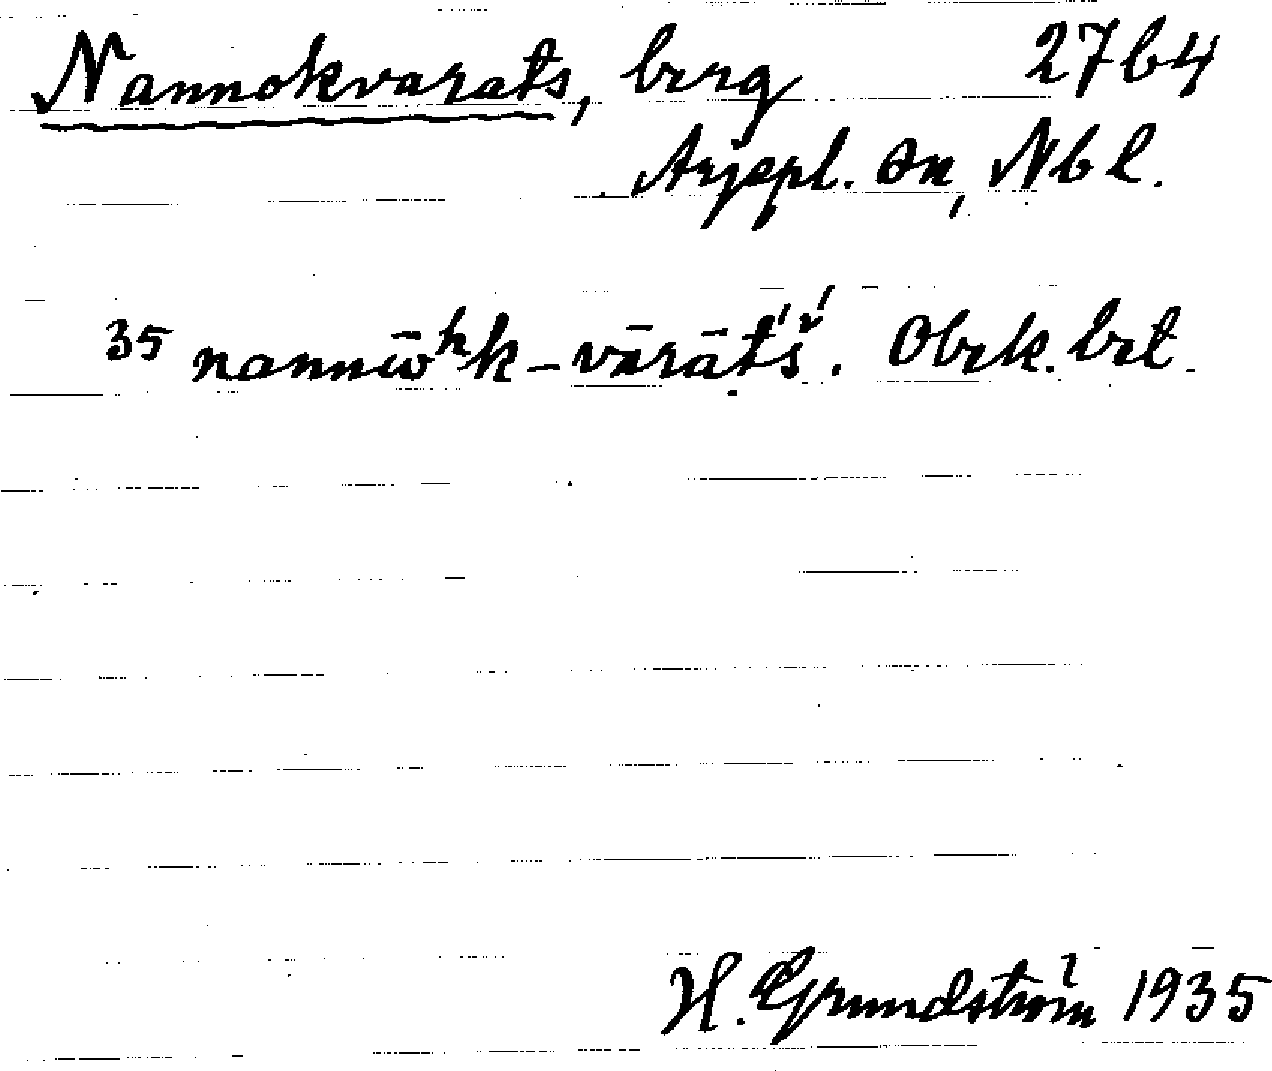 Nannokvarats, berg 27b4
Arjepl. sn, Nbl.
35 nannω̄ʰk-vārāt́š́. Obek. bet.
H. Grundström 1935